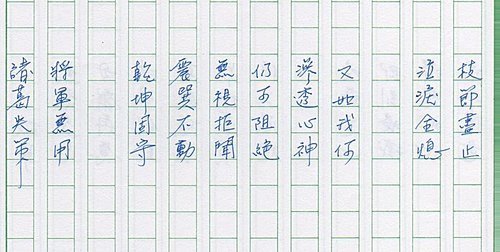 枝節盡止
泣淚全熄
又地我何
滲透心神
仍可阻絕
無視拒聞
震哭不動
乾坤固守
將軍無用
諸葛失算